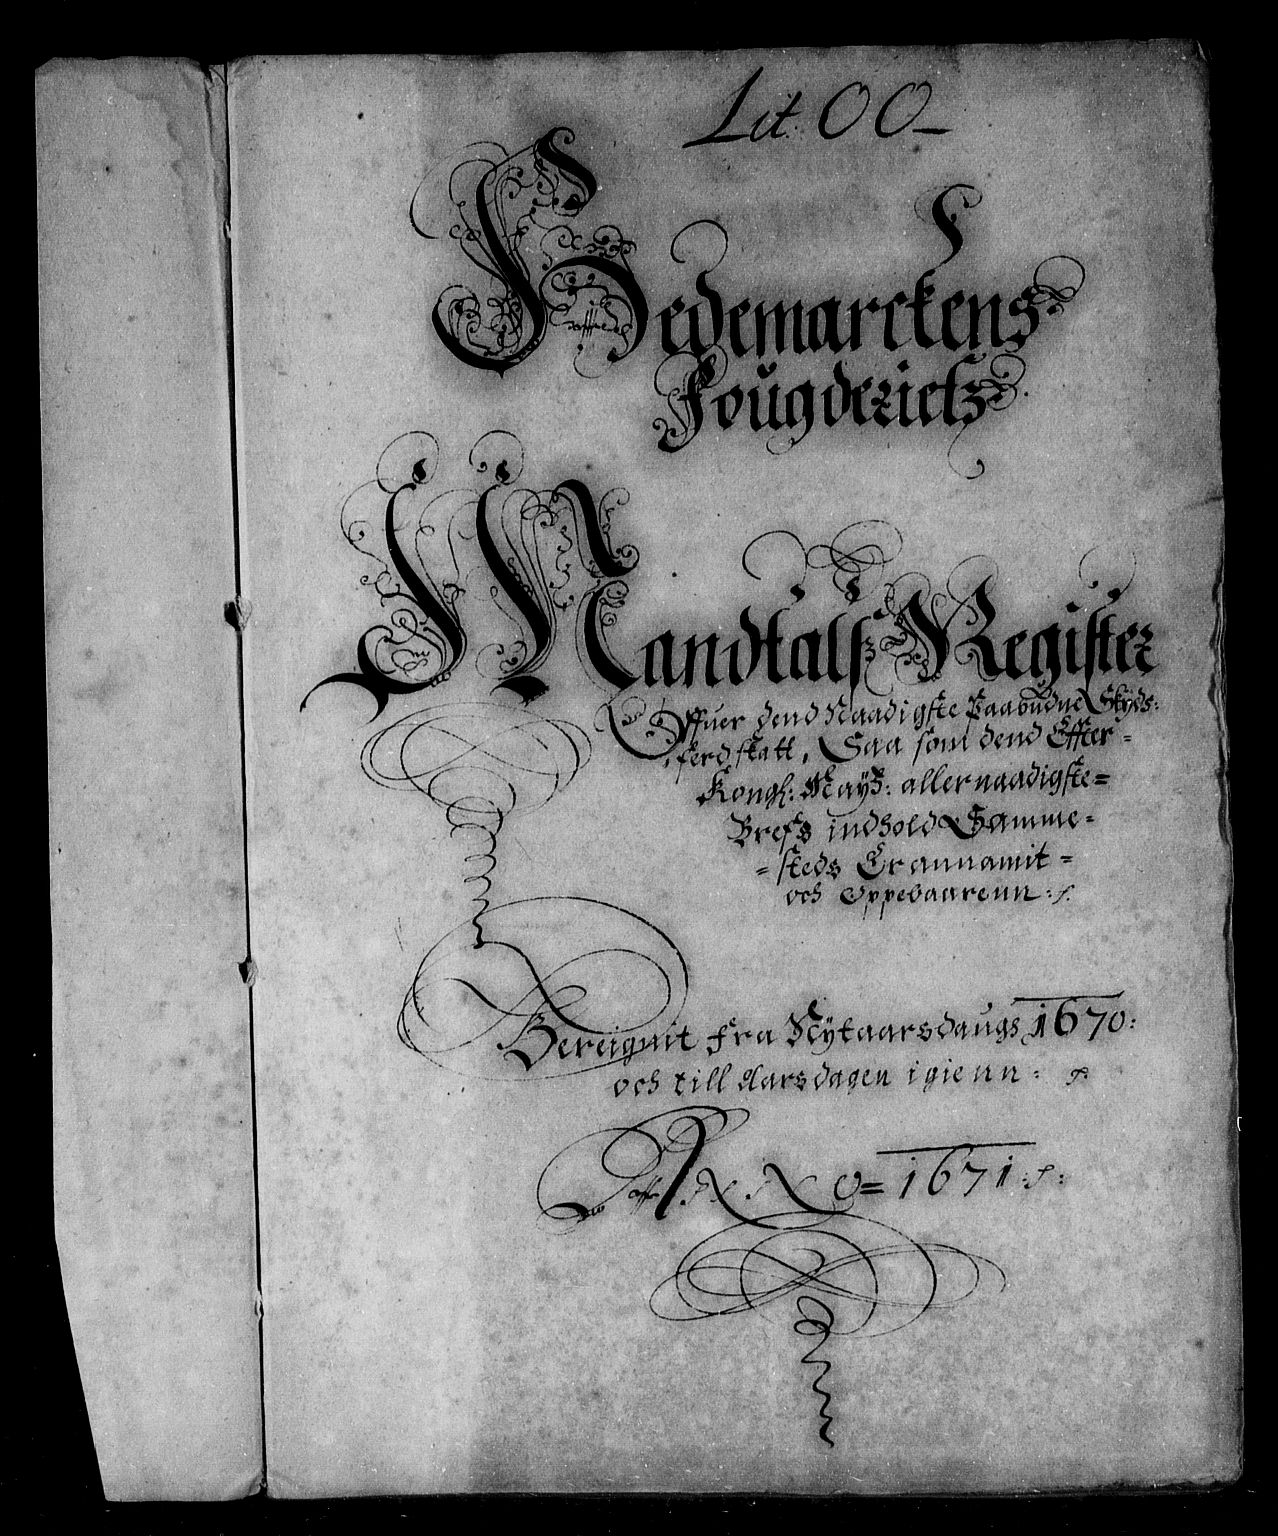 Lit: OO
Hedemarckens
Fougderietz
Mandtalsz Register
Offuer dend Naadigste Paabudne Skyds:
ferd skatt, Saa som dend Effter
Kongl: Mayß: allernaadigste
Brefs indhold Samme
steds Er annamit
och Oppebaarenn
Bereignit fra Nytaarsdaugs 1670:
och till Aarsdagen igienn:
ANNO 1671